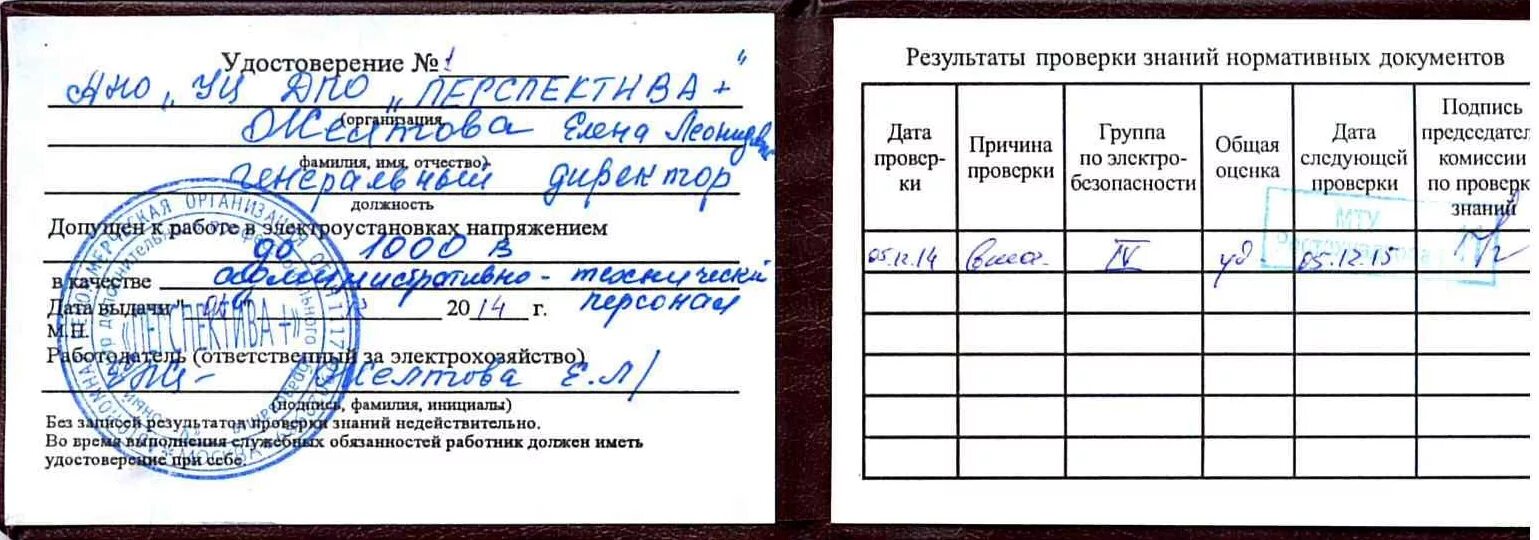 Удостоверение № 1
АНО „УЦ ДПО „ПЕРСПЕКТИВА+"
(организация
Желтова Елена Леонидовна
фамилия, имя, отчество)
генеральный директор
должность
Допущен к работе в электроустановках напряжением
до 1000 В
в качестве административно-технический
Дата выдачи " 2014 г. персонал
М.П.
Работодатель (ответственный за электрохозяйство)
Желтова Е.Л/
(подпись, фамилия, инициалы)
Без записей результатов проверки знаний недействительно.
Во время выполнения служебных обязанностей работник должен иметь
удостоверение при себе.
«ПЕРСПЕКТИВА+»
МОСКВА
Результаты проверки знаний нормативных документов
Дата провер-
ки
Причина
проверки
Группа
по электро-
безопасности
Общая
оценка
Дата
следующей
проверки
Подпись
председател
комиссии
по проверк
знаний
МТУ
05.12.14 IV уд. 05.12.15